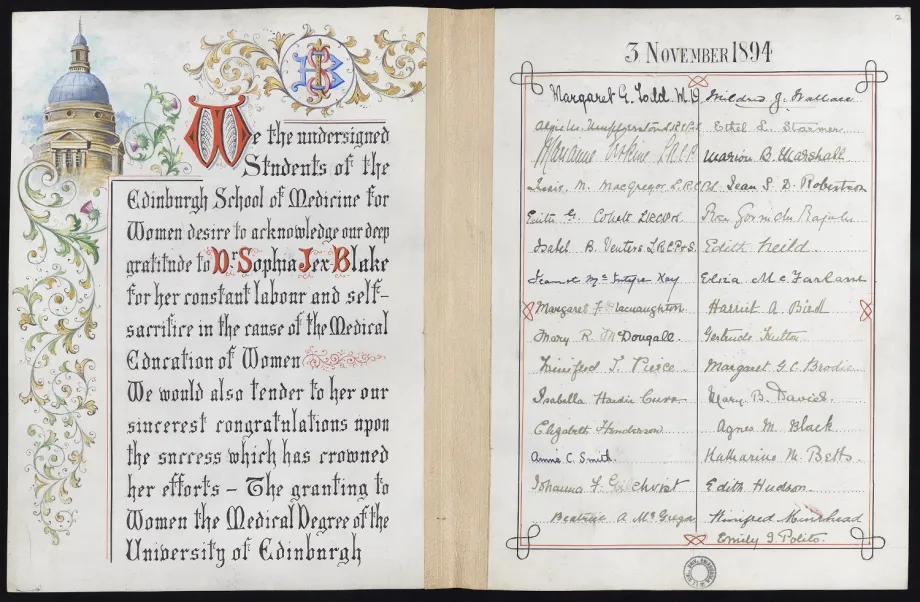 We the undersigned
Students of the
Edinburgh School of Medicine for
Women desire to acknowledge our deep
gratitude to Dr Sophia Jex Blake
for her constant labour and self-
sacrifice in the cause of the Medical
Education of Women
We would also tender to her our
sincerest congratulations upon
the success which has crowned
her efforts – The granting to
Women the Medical Degree of the
University of Edinburgh
2
3 NOVEMBER 1894
Margaret G. Todd M.D.
Marianne Erskine L.R.C.P.
Jessie M. MacGregor
Edith G.
Isabel B. Venters L.R.C.P&S.
Kay
Margaret F.
Mary R. McDougall.
Winifred T. Pierce
Isabella
Elizabeth Henderson
Annie C. Smith.
Johanna F. Gilchrist
Beatrice A McGregor
Mildred J. Wallace
Ethel L. Starmer
Marion B. Marshall
Jean S. D. Robertson
Rose
Edith Neild.
Eliza McFarlane
Harriet A Bird
Gertrude
Margaret G.C. Brodie
Mary B. Davies.
Agnes M. Black
Katharine M. Betts.
Edith Hudson.
Winifred Muirhead
Emily